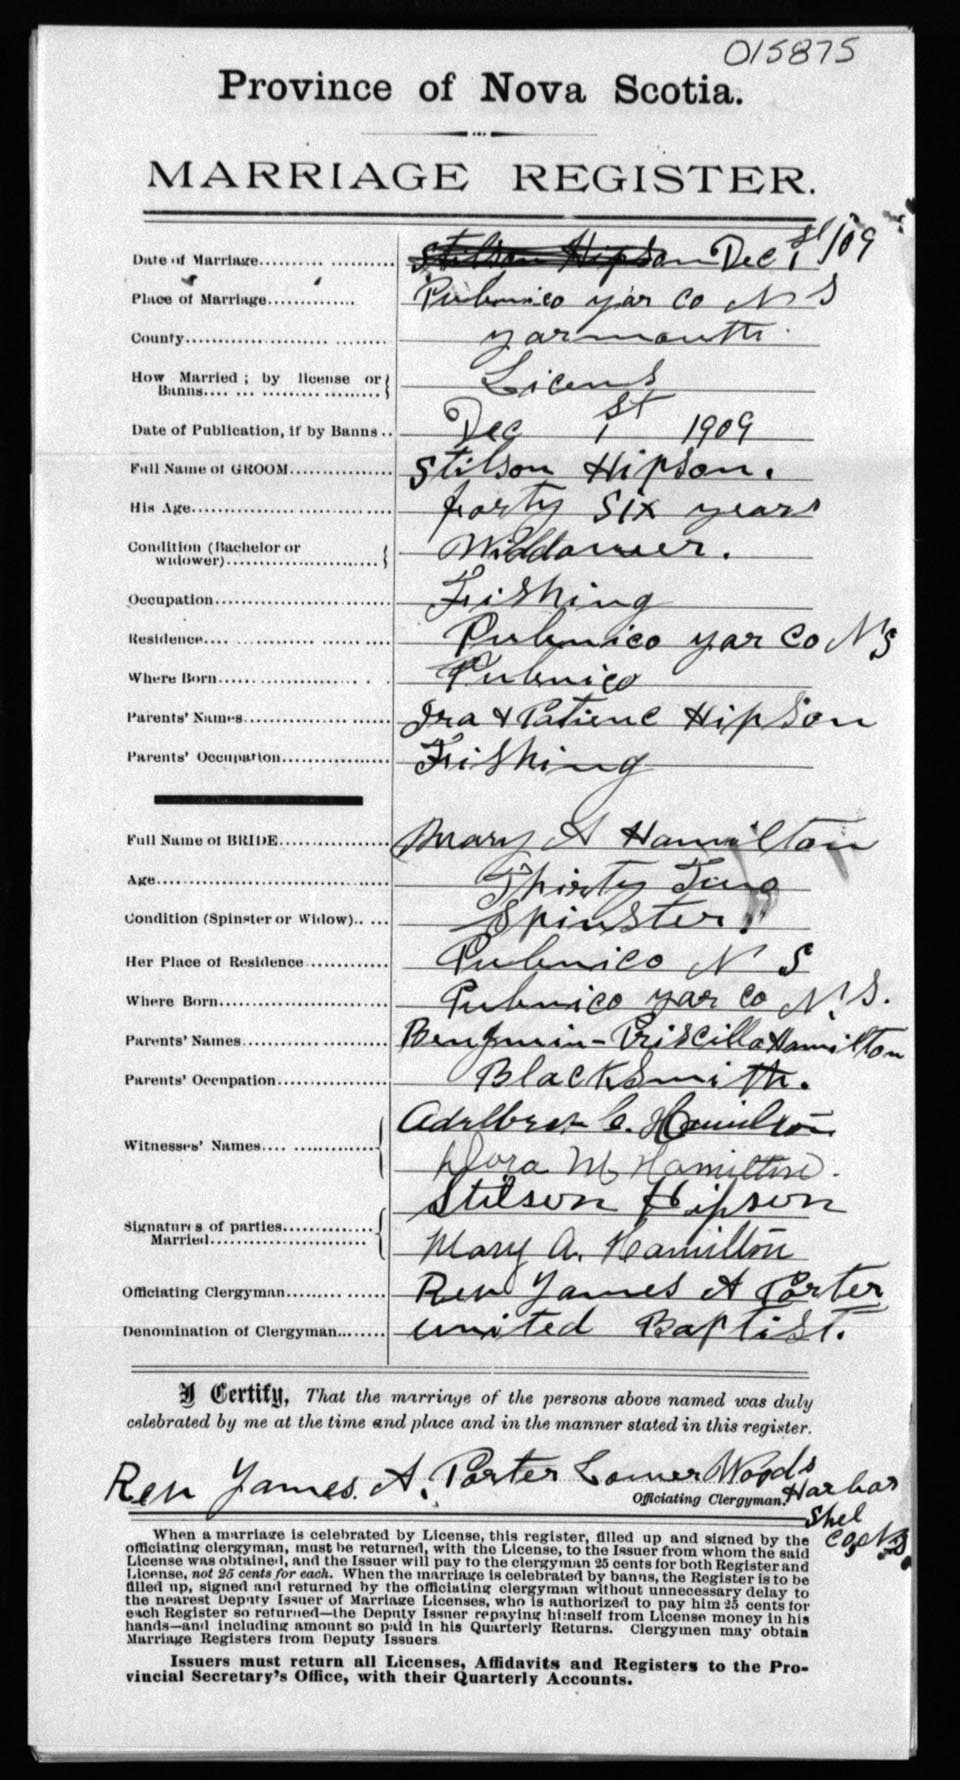 015875
Province of Nova Scotia.
MARRIAGE REGISTER.
Date of Marriage.......... ............ Stilson Hipson Dec 1st /09
Place of Marriage............. Pubnico yar co N S
County.................................... yarmouth.
How Married; by license or
Banns.... ... ......................... Licens
Date of Publication, if by Banns.. Dec 1st 1909
Full Name of GROOM.................. Stilson Hipson.
His Age.................................... forty Six years
Condition (Bachelor or
widower)............................... Widdower.
Occupation................................ Fishing
Residence.... ............. ...... ...... Pubnico yar co N S
Where Born............ ........ . . . Pubnico
Parents' Names.................. ...... Ira & Patienc Hipson
Parents' Occupation.................. Fishing
Full Name of BRIDE.................. Mary A Hamilton
Age.......................................... Thirty Two
Condition (Spinster or Widow).. .... Spinster.
Her Place of Residence............. Pubnico N S
Where Born.............................. Pubnico yar co N.S.
Parents' Names.............. .......... Benjmin - Priscilla Hamilton
Parents' Occupation.................. BlackSmith.
Witnesses' Names.... ................ Adelbert C. Hamilton
Dora M Hamilton.
Signatures of parties..............
Married......................... Stilson Hipson
Mary A. Hamilton
Officiating Clergyman......... ....... Rev James A Porter
Denomination of Clergyman......... united Baptist.
I Certify, That the marriage of the persons above named was duly
celebrated by me at the time and place and in the manner stated in this register.
Rev James. A. Porter Lower Woods
Harbor
Officiating Clergyman.
Shel
Co, N.S.
When a marriage is celebrated by License, this register, filled up and signed by the
officiating clergyman, must be returned, with the License, to the Issuer from whom the said
License was obtained, and the Issuer will pay to the clergyman 25 cents for both Register and
License, not 25 cents for each. When the marriage is celebrated by banns, the Register is to be
filled up, signed and returned by the officiating clergyman without unnecessary delay to
the nearest Deputy Issuer of Marriage Licenses, who is authorized to pay him 25 cents for
each Register so returned—the Deputy Issuer repaying himself from License money in his
hands—and including amount so paid in his Quarterly Returns. Clergymen may obtain
Marriage Registers from Deputy Issuers
Issuers must return all Licenses, Affidavits and Registers to the Pro-
vincial Secretary's Office, with their Quarterly Accounts.